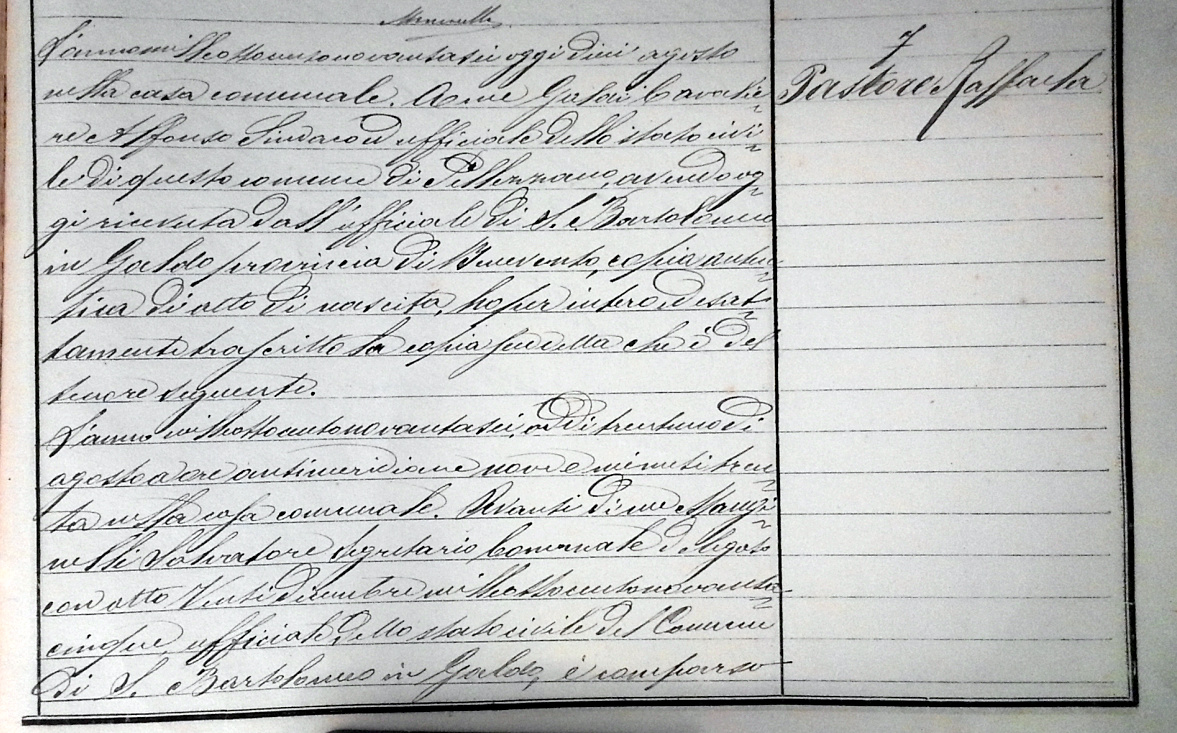 L'anno millottocentonovantasei oggi dieci agosto
nella casa comunale. A me Galdi Cavalie
re Alfonso Sindaco ed ufficiale dello stato civi
le di questo comune di Pellezzano, avendo og
gi ricevuta dall'ufficiale di S. Bartolomeo
in Galdo provincia di Benevento, copia auten
tica di atto di nascita, ho per intero ed esat
tamente trascritto la copia suddetta che è del
tenore seguente.
L'anno millottocentonovantasei, addì trentuno di
agosto a ore antimeridiane nove e minuti tren
ta nella casa comunale. Avanti di me Mangi
nelli Salvatore Segretario Comunale delegato
con atto Venti dicembre millottocentonovanta
cinque ufficiale dello stato civile del Comune
di S. Bartolomeo in Galdo, è comparso
7
Pastore Raffaela